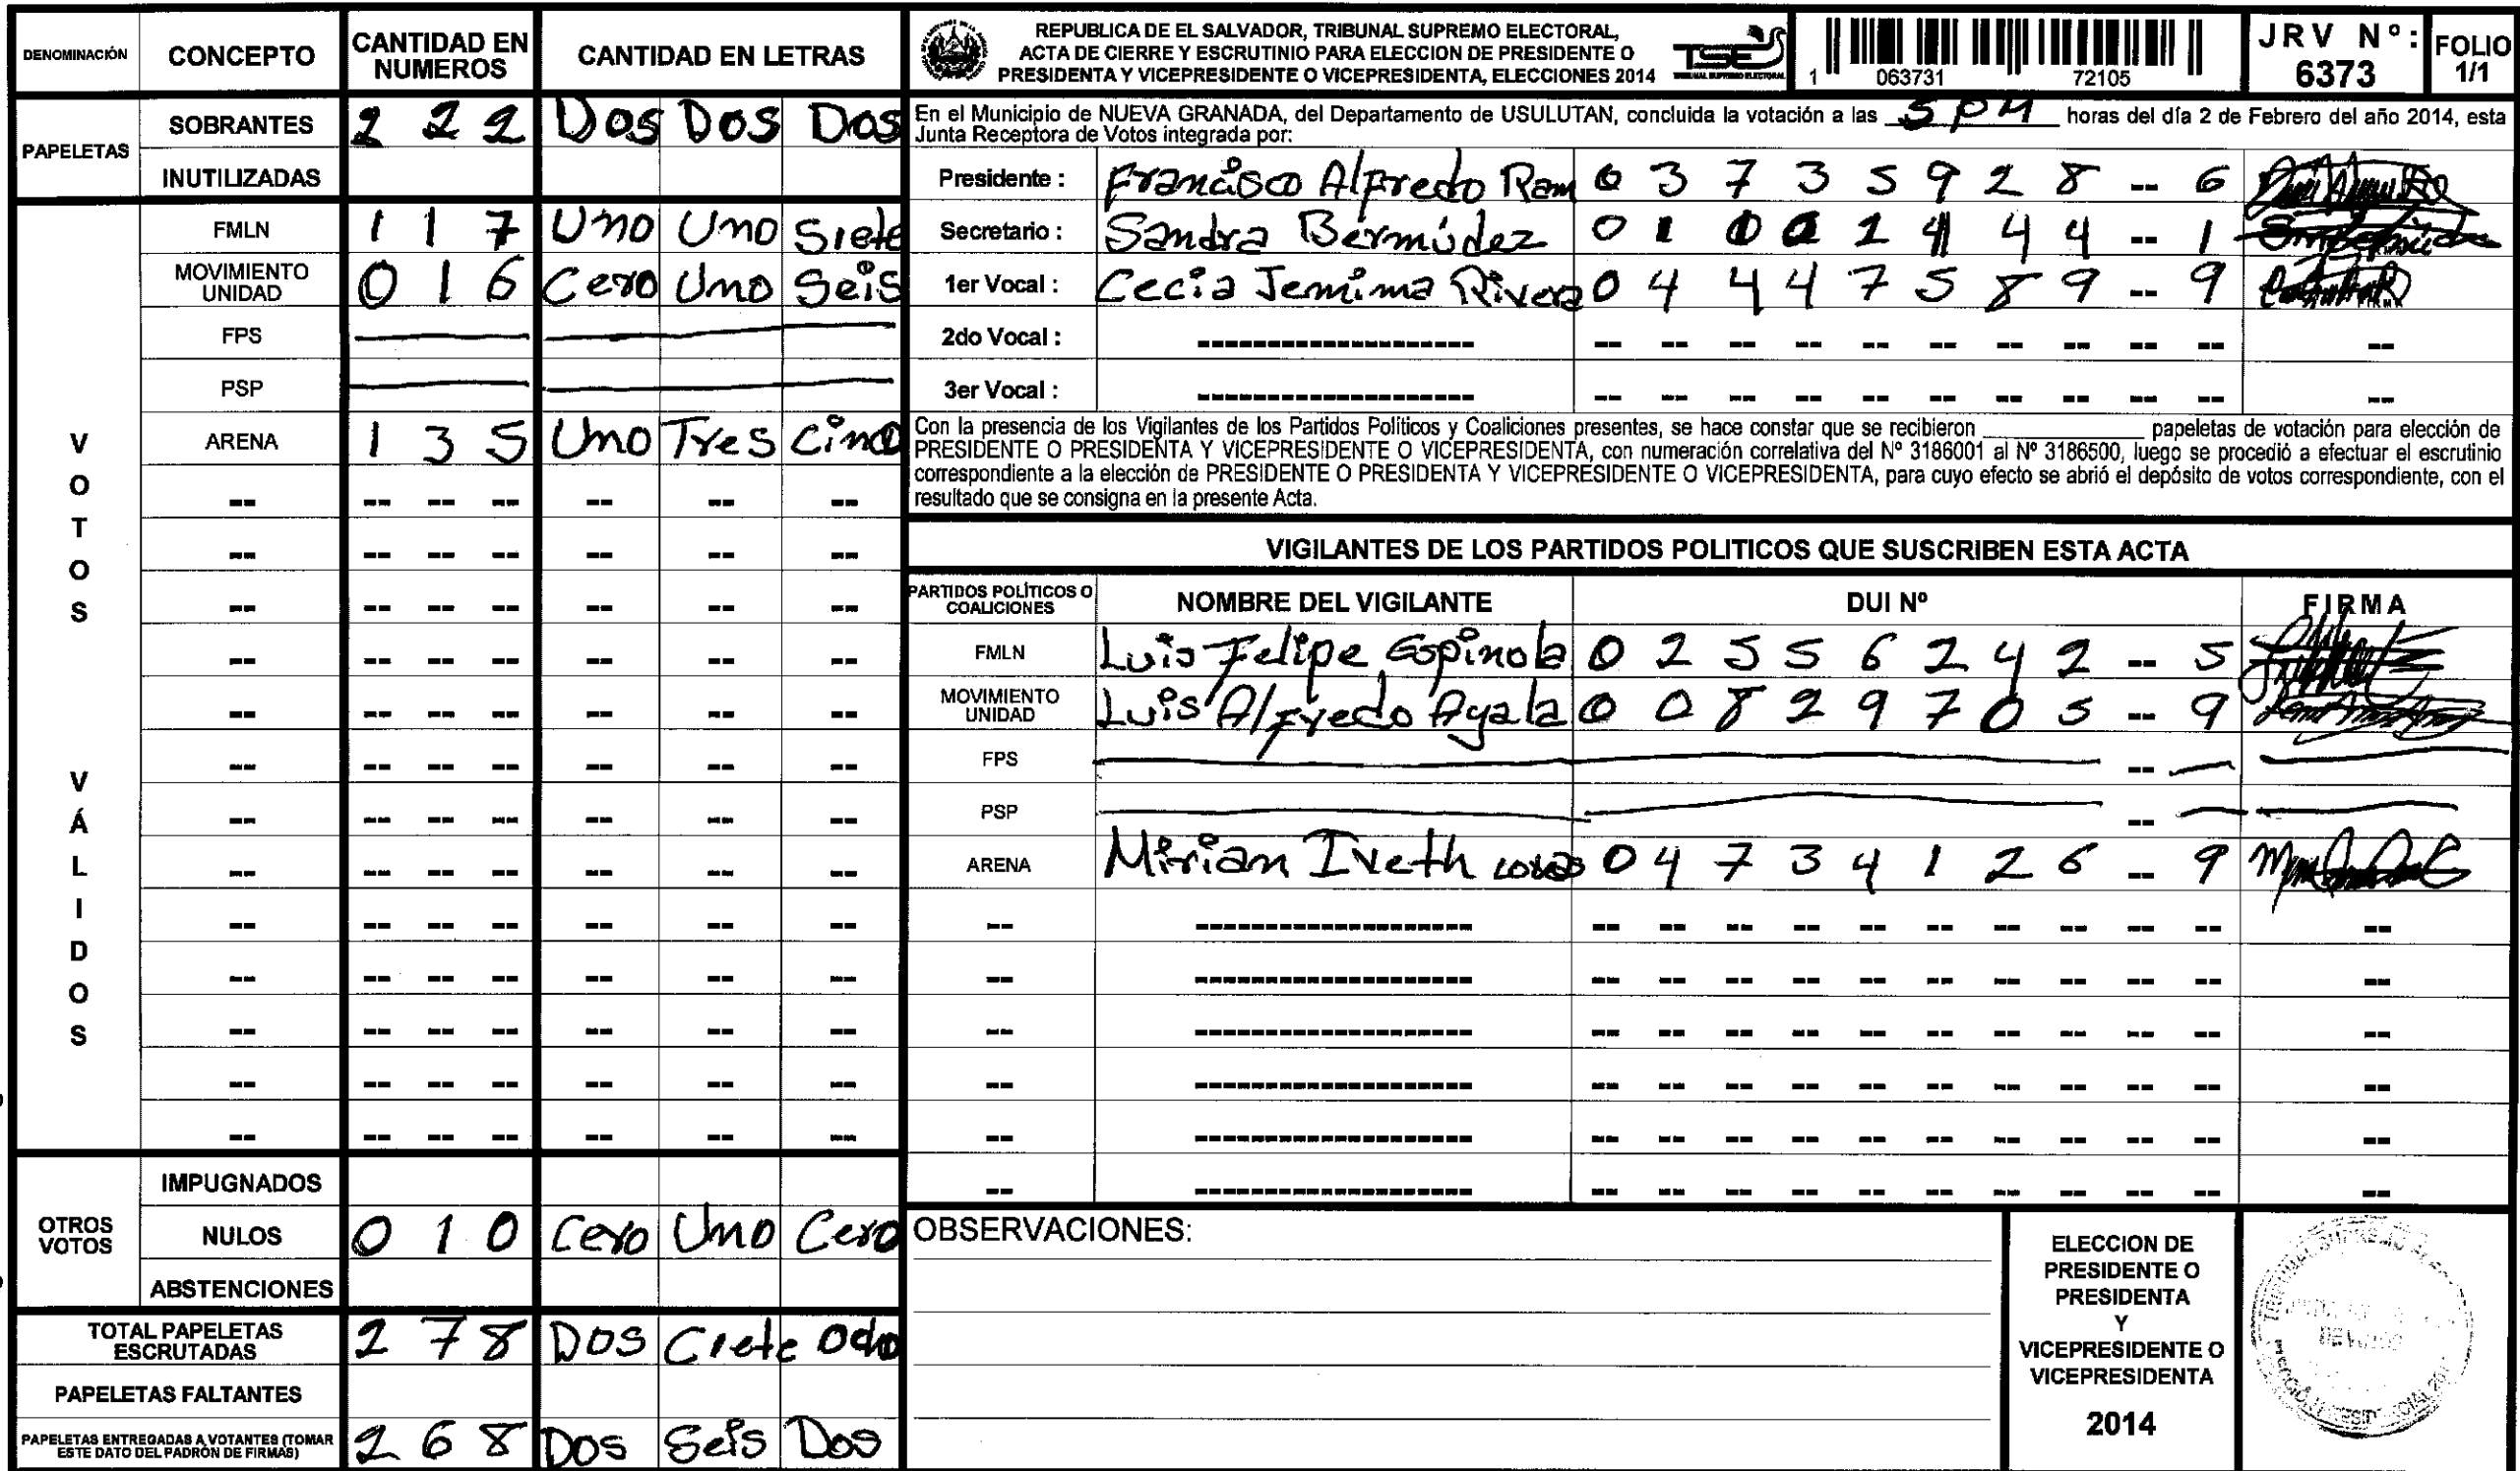 DENOMINACIÓN CONCEPTO CANTIDAD EN NUMEROS CANTIDAD EN LETRAS
PAPELETAS
SOBRANTES 2 2 2 Dos Dos Dos
INUTILIZADAS
VOTOS VÁLIDOS
FMLN 1 1 7 Uno Uno Siete
MOVIMIENTO UNIDAD 0 1 6 Cero Uno Seis
FPS
PSP
ARENA 1 3 5 Uno Tres Cinco
OTROS VOTOS
IMPUGNADOS
NULOS 0 1 0 Cero Uno Cero
ABSTENCIONES
TOTAL PAPELETAS ESCRUTADAS 2 7 8 Dos Ciete Ocho
PAPELETAS FALTANTES
PAPELETAS ENTREGADAS A VOTANTES (TOMAR ESTE DATO DEL PADRÓN DE FIRMAS) 2 6 8 Dos Seis Dos
REPUBLICA DE EL SALVADOR, TRIBUNAL SUPREMO ELECTORAL,
ACTA DE CIERRE Y ESCRUTINIO PARA ELECCION DE PRESIDENTE O
PRESIDENTA Y VICEPRESIDENTE O VICEPRESIDENTA, ELECCIONES 2014
TSE
TRIBUNAL SUPREMO ELECTORAL
1 063731 72105
JRV Nº: 6373
FOLIO 1/1
En el Municipio de NUEVA GRANADA, del Departamento de USULUTAN, concluida la votación a las 5 PM horas del día 2 de Febrero del año 2014, esta
Junta Receptora de Votos integrada por:
Presidente : Francisco Alfredo Ram 0 3 7 3 5 9 2 8 -- 6
Secretario : Sandra Bermúdez -- 1
1er Vocal : Cecia Jemima Rivera 0 4 4 4 7 5 8 9 -- 9
2do Vocal :
3er Vocal :
Con la presencia de los Vigilantes de los Partidos Políticos y Coaliciones presentes, se hace constar que se recibieron ____ papeletas de votación para elección de
PRESIDENTE O PRESIDENTA Y VICEPRESIDENTE O VICEPRESIDENTA, con numeración correlativa del Nº 3186001 al Nº 3186500, luego se procedió a efectuar el escrutinio
correspondiente a la elección de PRESIDENTE O PRESIDENTA Y VICEPRESIDENTE O VICEPRESIDENTA, para cuyo efecto se abrió el depósito de votos correspondiente, con el
resultado que se consigna en la presente Acta.
VIGILANTES DE LOS PARTIDOS POLITICOS QUE SUSCRIBEN ESTA ACTA
PARTIDOS POLÍTICOS O COALICIONES NOMBRE DEL VIGILANTE DUI Nº FIRMA
FMLN Luis Felipe Espinola 0 2 5 5 6 2 4 2 -- 5
MOVIMIENTO UNIDAD Luis Alfredo Ayala 0 0 8 2 9 7 0 5 -- 9
FPS
PSP
ARENA Mirian Iveth 0 4 7 3 4 1 2 6 -- 9
OBSERVACIONES:
ELECCION DE
PRESIDENTE O
PRESIDENTA
Y
VICEPRESIDENTE O
VICEPRESIDENTA
2014